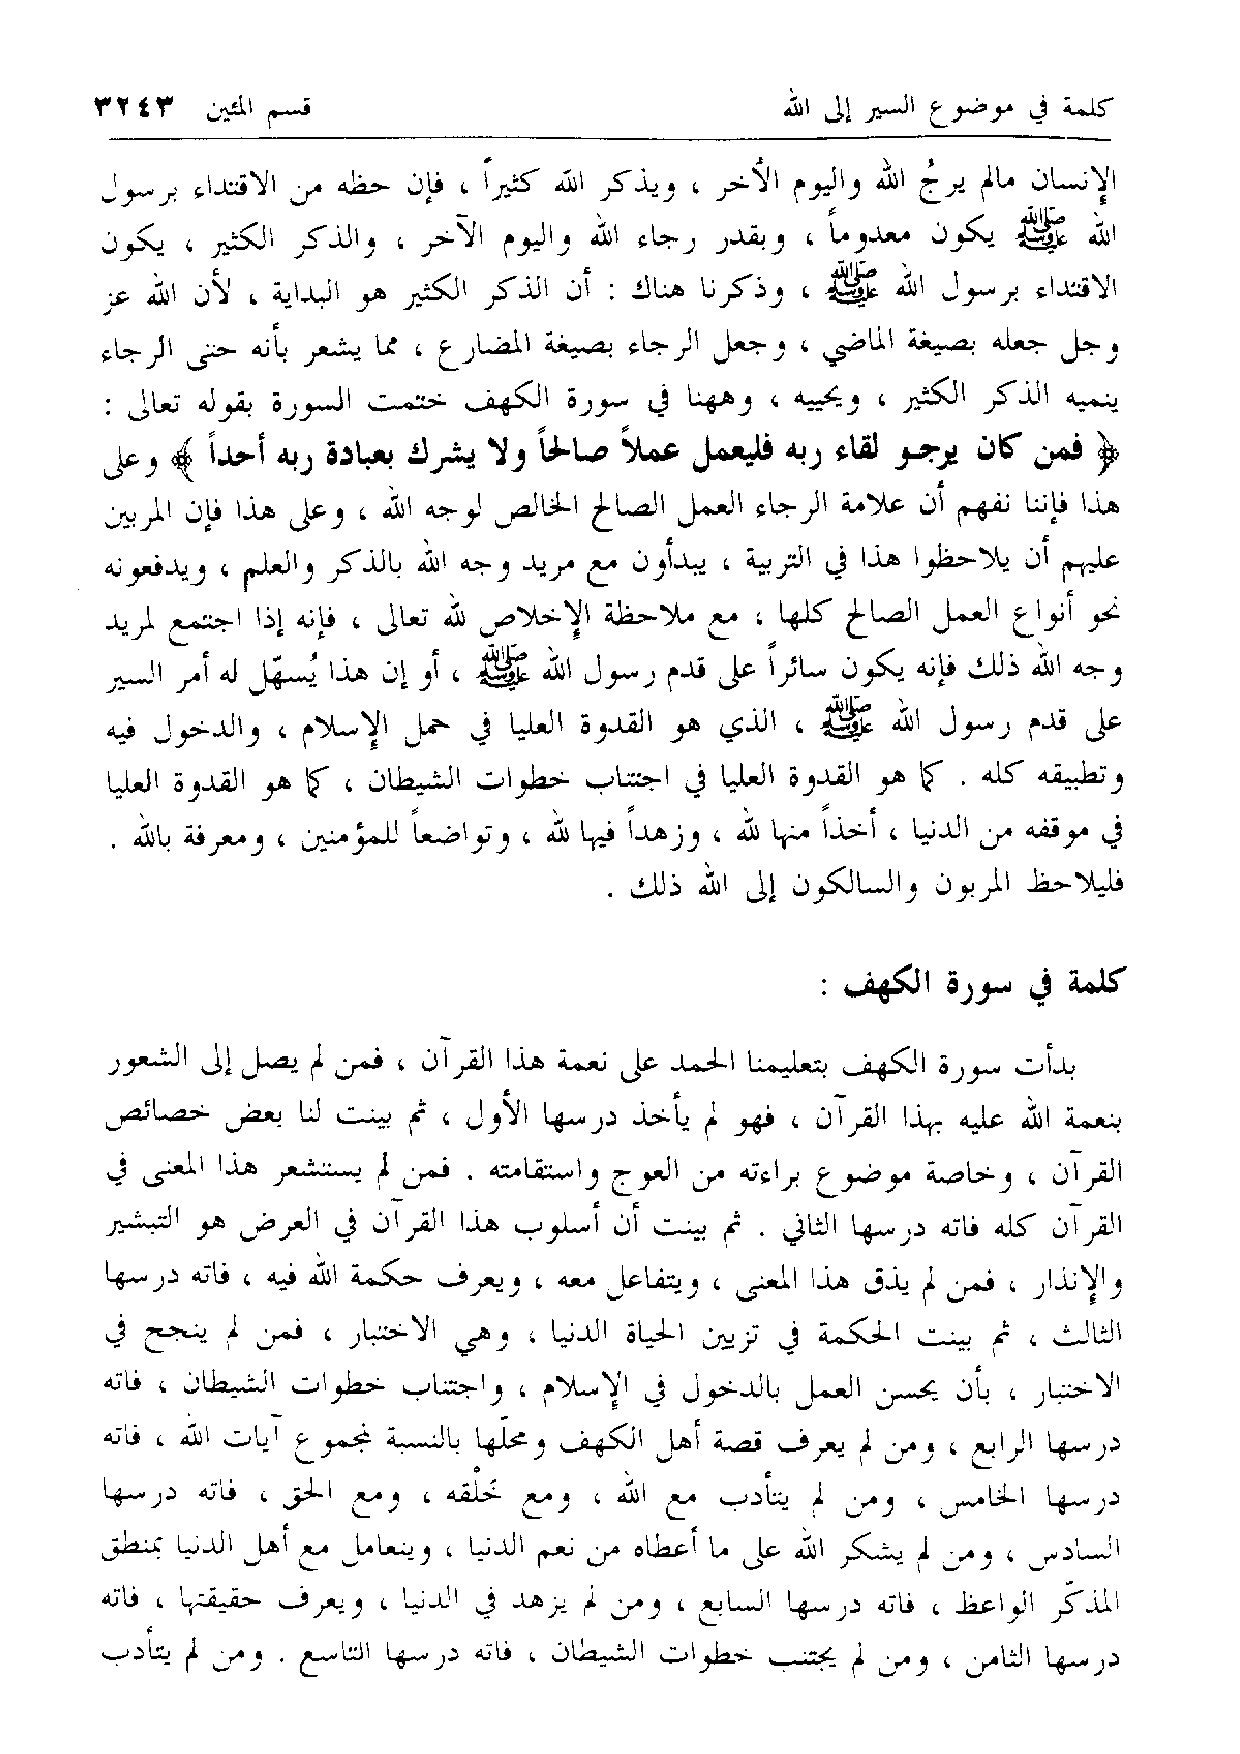 كلمة في موضوع السير إلى الله قسم المئين ٣٢٤٣
الإنسان مالم يرجُ الله واليوم الأخر ، ويذكر الله كثيراً ، فإن حظه من الاقتداء برسول
الله ﷺ يكون معدوماً ، وبقدر رجاء الله واليوم الآخر ، والذكر الكثير ، يكون
الاقتداء برسول الله ﷺ ، وذكرنا هناك : أن الذكر الكثير هو البداية ، لأن الله عز
وجل جعله بصيغة الماضي ، وجعل الرجاء بصيغة المضارع ، مما يشعر بأنه حتى الرجاء
ينميه الذكر الكثير ، ويحييه ، وههنا في سورة الكهف ختمت السورة بقوله تعالى :
﴿ فمن كان يرجو لقاء ربه فليعمل عملاً صالحاً ولا يشرك بعبادة ربه أحداً ﴾ وعلى
هذا فإننا نفهم أن علامة الرجاء العمل الصالح الخالص لوجه الله ، وعلى هذا فإن المربين
عليهم أن يلاحظوا هذا في التربية ، يبدأون مع مريد وجه الله بالذكر والعلم ، ويدفعونه
نحو أنواع العمل الصالح كلها ، مع ملاحظة الإخلاص لله تعالى ، فإنه إذا اجتمع لمريد
وجه الله ذلك فإنه يكون سائراً على قدم رسول الله ﷺ ، أو إن هذا يُسهّل له أمر السير
على قدم رسول الله ﷺ ، الذي هو القدوة العليا في حمل الإسلام ، والدخول فيه
وتطبيقه كله . كما هو القدوة العليا في اجتناب خطوات الشيطان ، كما هو القدوة العليا
في موقفه من الدنيا ، أخذاً منها لله ، وزهداً فيها لله ، وتواضعاً للمؤمنين ، ومعرفة بالله .
فليلاحظ المربون والسالكون إلى الله ذلك .
كلمة في سورة الكهف :
بدأت سورة الكهف بتعليمنا الحمد على نعمة هذا القرآن ، فمن لم يصل إلى الشعور
بنعمة الله عليه بهذا القرآن ، فهو لم يأخذ درسها الأول ، ثم بينت لنا بعض خصائص
القرآن ، وخاصة موضوع براءته من العوج واستقامته . فمن لم يستشعر هذا المعنى في
القرآن كله فاته درسها الثاني . ثم بينت أن أسلوب هذا القرآن في العرض هو التبشير
والإنذار ، فمن لم يذق هذا المعنى ، ويتفاعل معه ، ويعرف حكمة الله فيه ، فاته درسها
الثالث ، ثم بينت الحكمة في تزيين الحياة الدنيا ، وهي الاختبار ، فمن لم ينجح في
الاختبار ، بأن يحسن العمل بالدخول في الإسلام ، واجتناب خطوات الشيطان ، فاته
درسها الرابع ، ومن لم يعرف قصة أهل الكهف ومحلّها بالنسبة لمجموع آيات الله ، فاته
درسها الخامس ، ومن لم يتأدب مع الله ، ومع خَلْقه ، ومع الحق ، فاته درسها
السادس ، ومن لم يشكر الله على ما أعطاه من نعم الدنيا ، ويتعامل مع أهل الدنيا بمنطق
المذكّر الواعظ ، فاته درسها السابع ، ومن لم يزهد في الدنيا ، ويعرف حقيقتها ، فاته
درسها الثامن ، ومن لم يجتنب خطوات الشيطان ، فاته درسها التاسع . ومن لم يتأدب